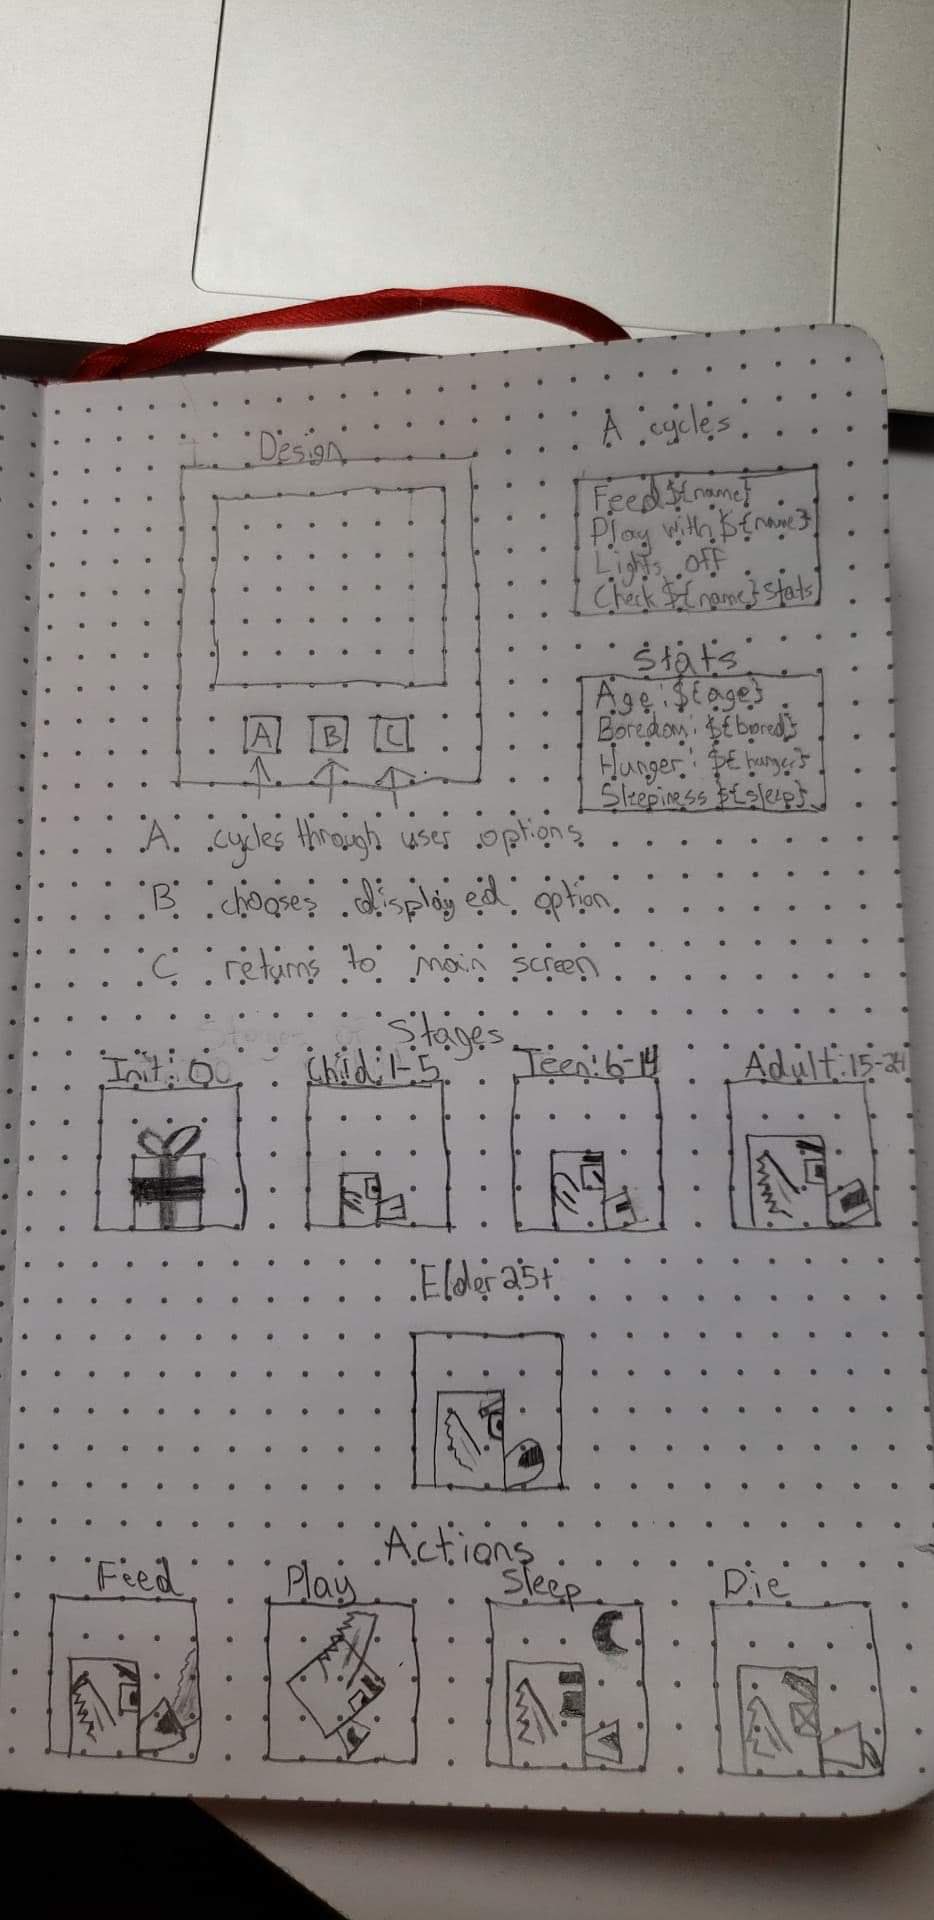 Design
A cycles
Feed ${name}
Play with ${name}
Lights off
Check ${name} stats
Stats
Age: ${age}
Boredom: ${bored}
Hunger: ${hunger}
Sleepiness ${sleep}
A B C
A. cycles through user options
B chooses displayed option.
C returns to main screen
Stages
Init: 0
Child: 1-5
Teen: 6-14
Adult: 15-24
Elder 25+
Actions
Feed
Play
Sleep
Die